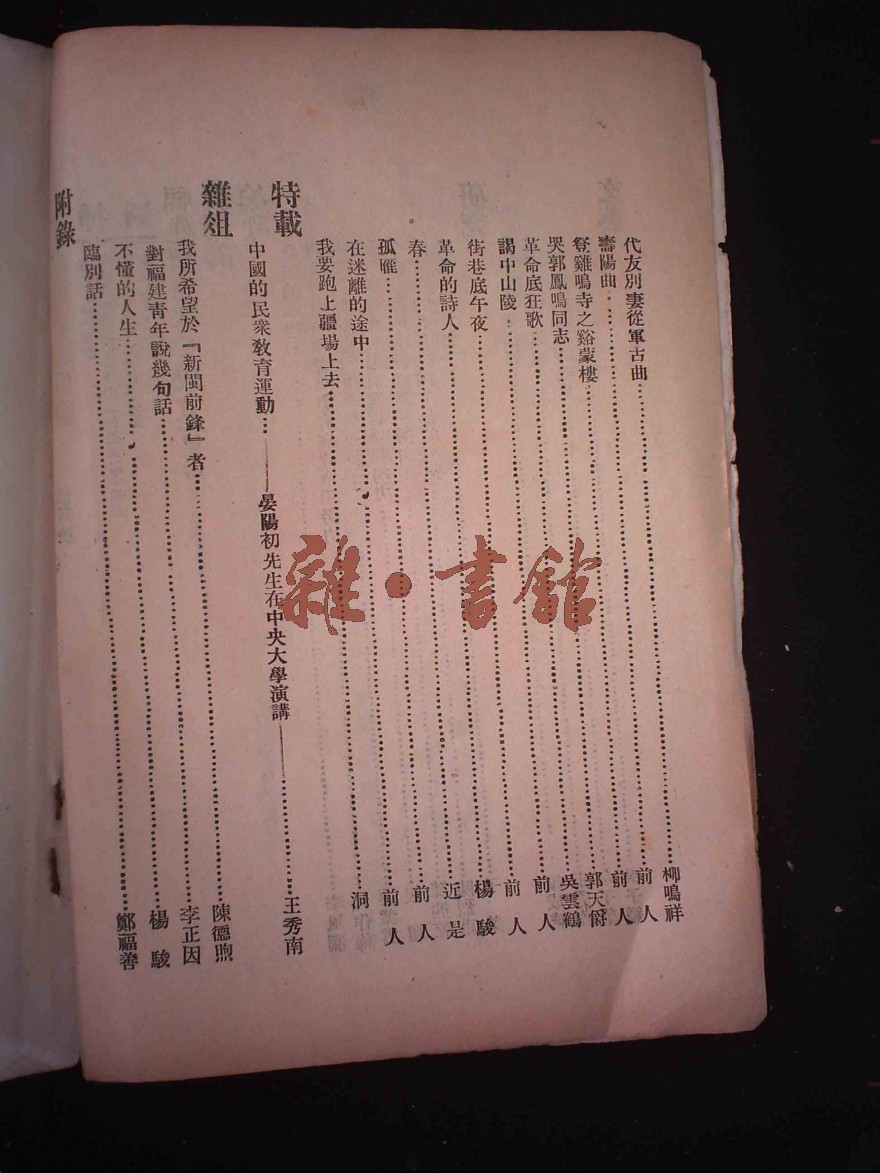 代友別妻從軍古曲……柳鳴祥
壽陽曲……前人
登雞鳴寺之豁蒙樓……前人
哭郭鳳鳴同志……郭天爵
革命底狂歌……吳雲鶴
謁中山陵……前人
街巷底午夜……前人
革命的詩人……楊駿
春……近是
孤雁……前人
在迷離的途中……前人
我要跑上疆場上去……洞
特載
中國的民衆教育運動…——晏陽初先生在中央大學演講——……王秀南
雜俎
我所希望於『新閩前鋒』者……陳德煦
對福建青年說幾句話……李正因
不懂的人生……楊駿
臨別話……鄭福善
附錄
雜·書館